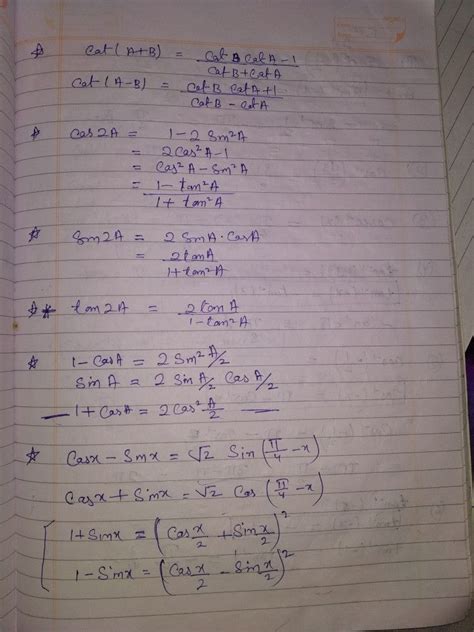 ☆ Cot(A+B) = Cot B Cot A - 1 / Cot B + Cot A
Cot(A-B) = Cot B Cot A + 1 / Cot B - Cot A
☆ Cos2A = 1 - 2 Sin²A
= 2Cos²A - 1
= Cos²A - Sin²A
= 1 - tan²A / 1 + tan²A
☆ Sin2A = 2 SinA · CosA
= 2tanA / 1 + tan²A
☆* tan2A = 2tanA / 1 - tan²A
☆ 1 - CosA = 2 Sin² A/2
SinA = 2 Sin A/2 Cos A/2
— 1 + CosA = 2Cos² A/2 —
☆ Cosx - Sinx = √2 Sin (π/4 - x)
Cosx + Sinx = √2 Cos (π/4 - x)
1 + Sinx = (Cos x/2 + Sin x/2)²
1 - Sinx = (Cos x/2 - Sin x/2)²